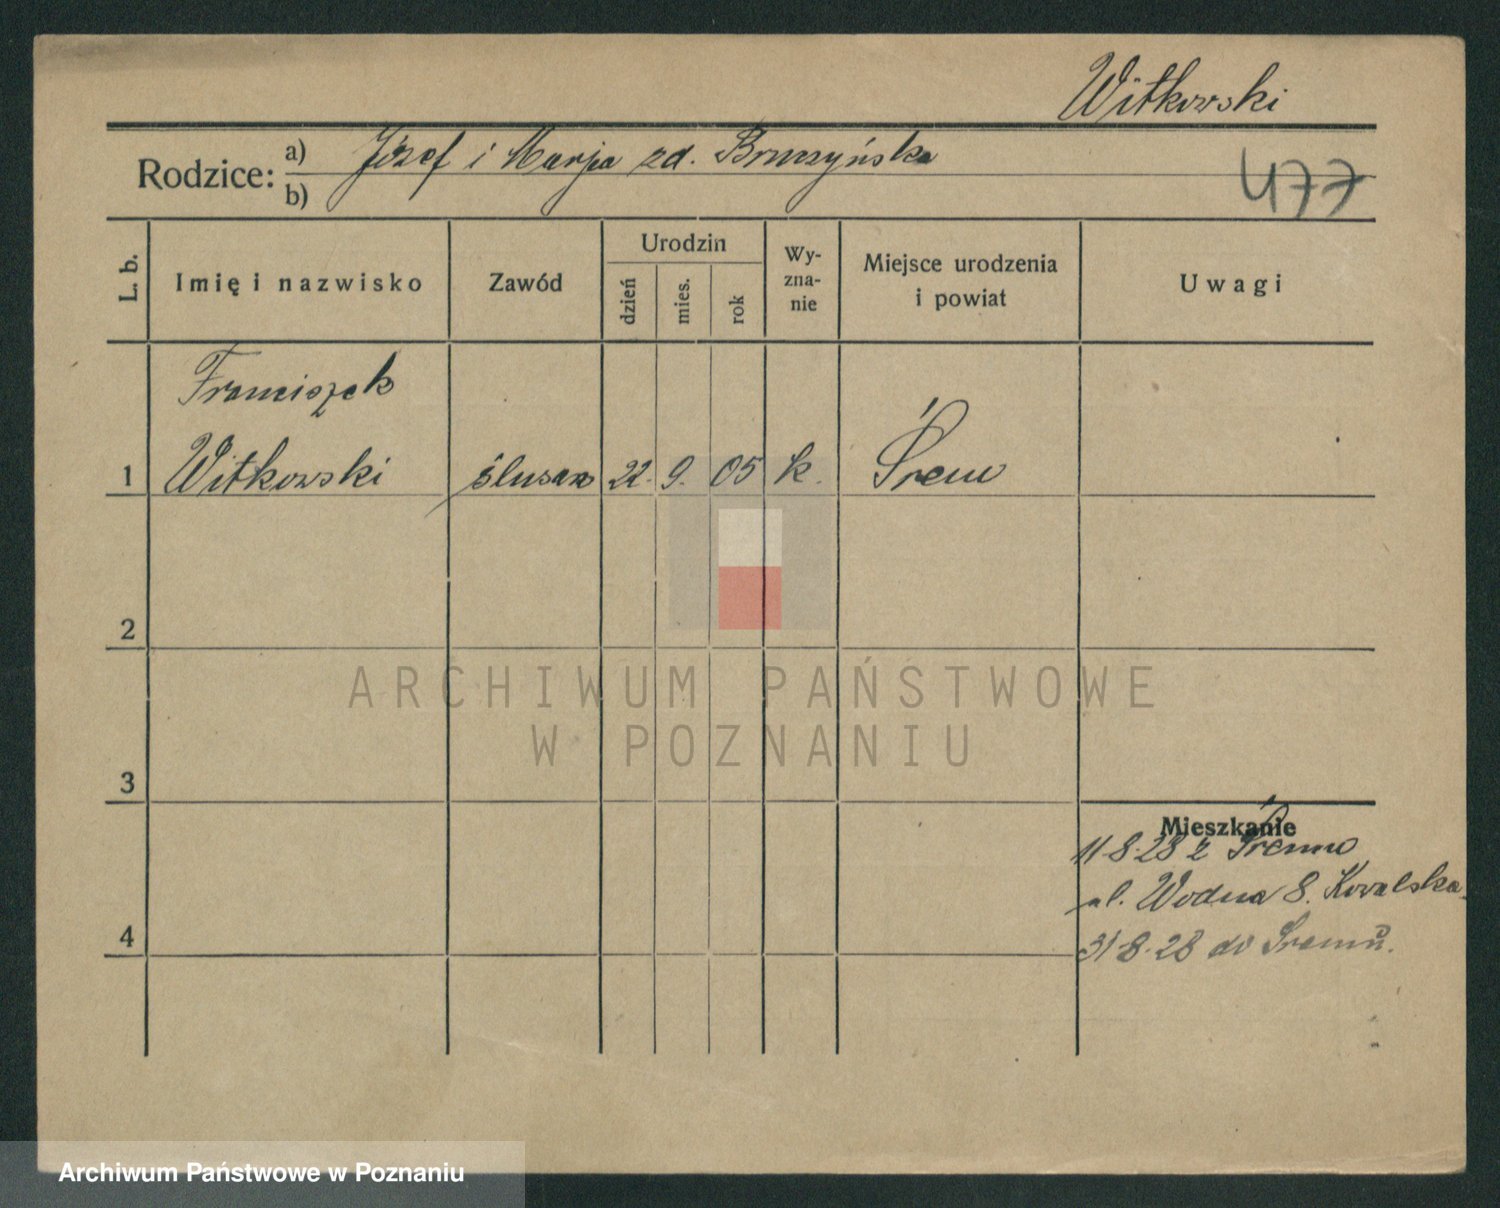 Witkowski
Rodzice: a) Józef i Marja zd. Bruczyńska
b)
477
L. b.
Imię i nazwisko
Zawód
Urodzin
dzień
mies.
rok
Wy-
zna-
nie
Miejsce urodzenia
i powiat
Uwagi
Franciszek
1 Witkowski ślusarz 22. 9. 05 k. Śrem
2
ARCHIWUM PAŃSTWOWE
W POZNANIU
3
Mieszkanie
11-8-28 z Śremu
ul. Wodna 8. Kowalska
4
31-8-28 do Śremu.
Archiwum Państwowe w Poznaniu